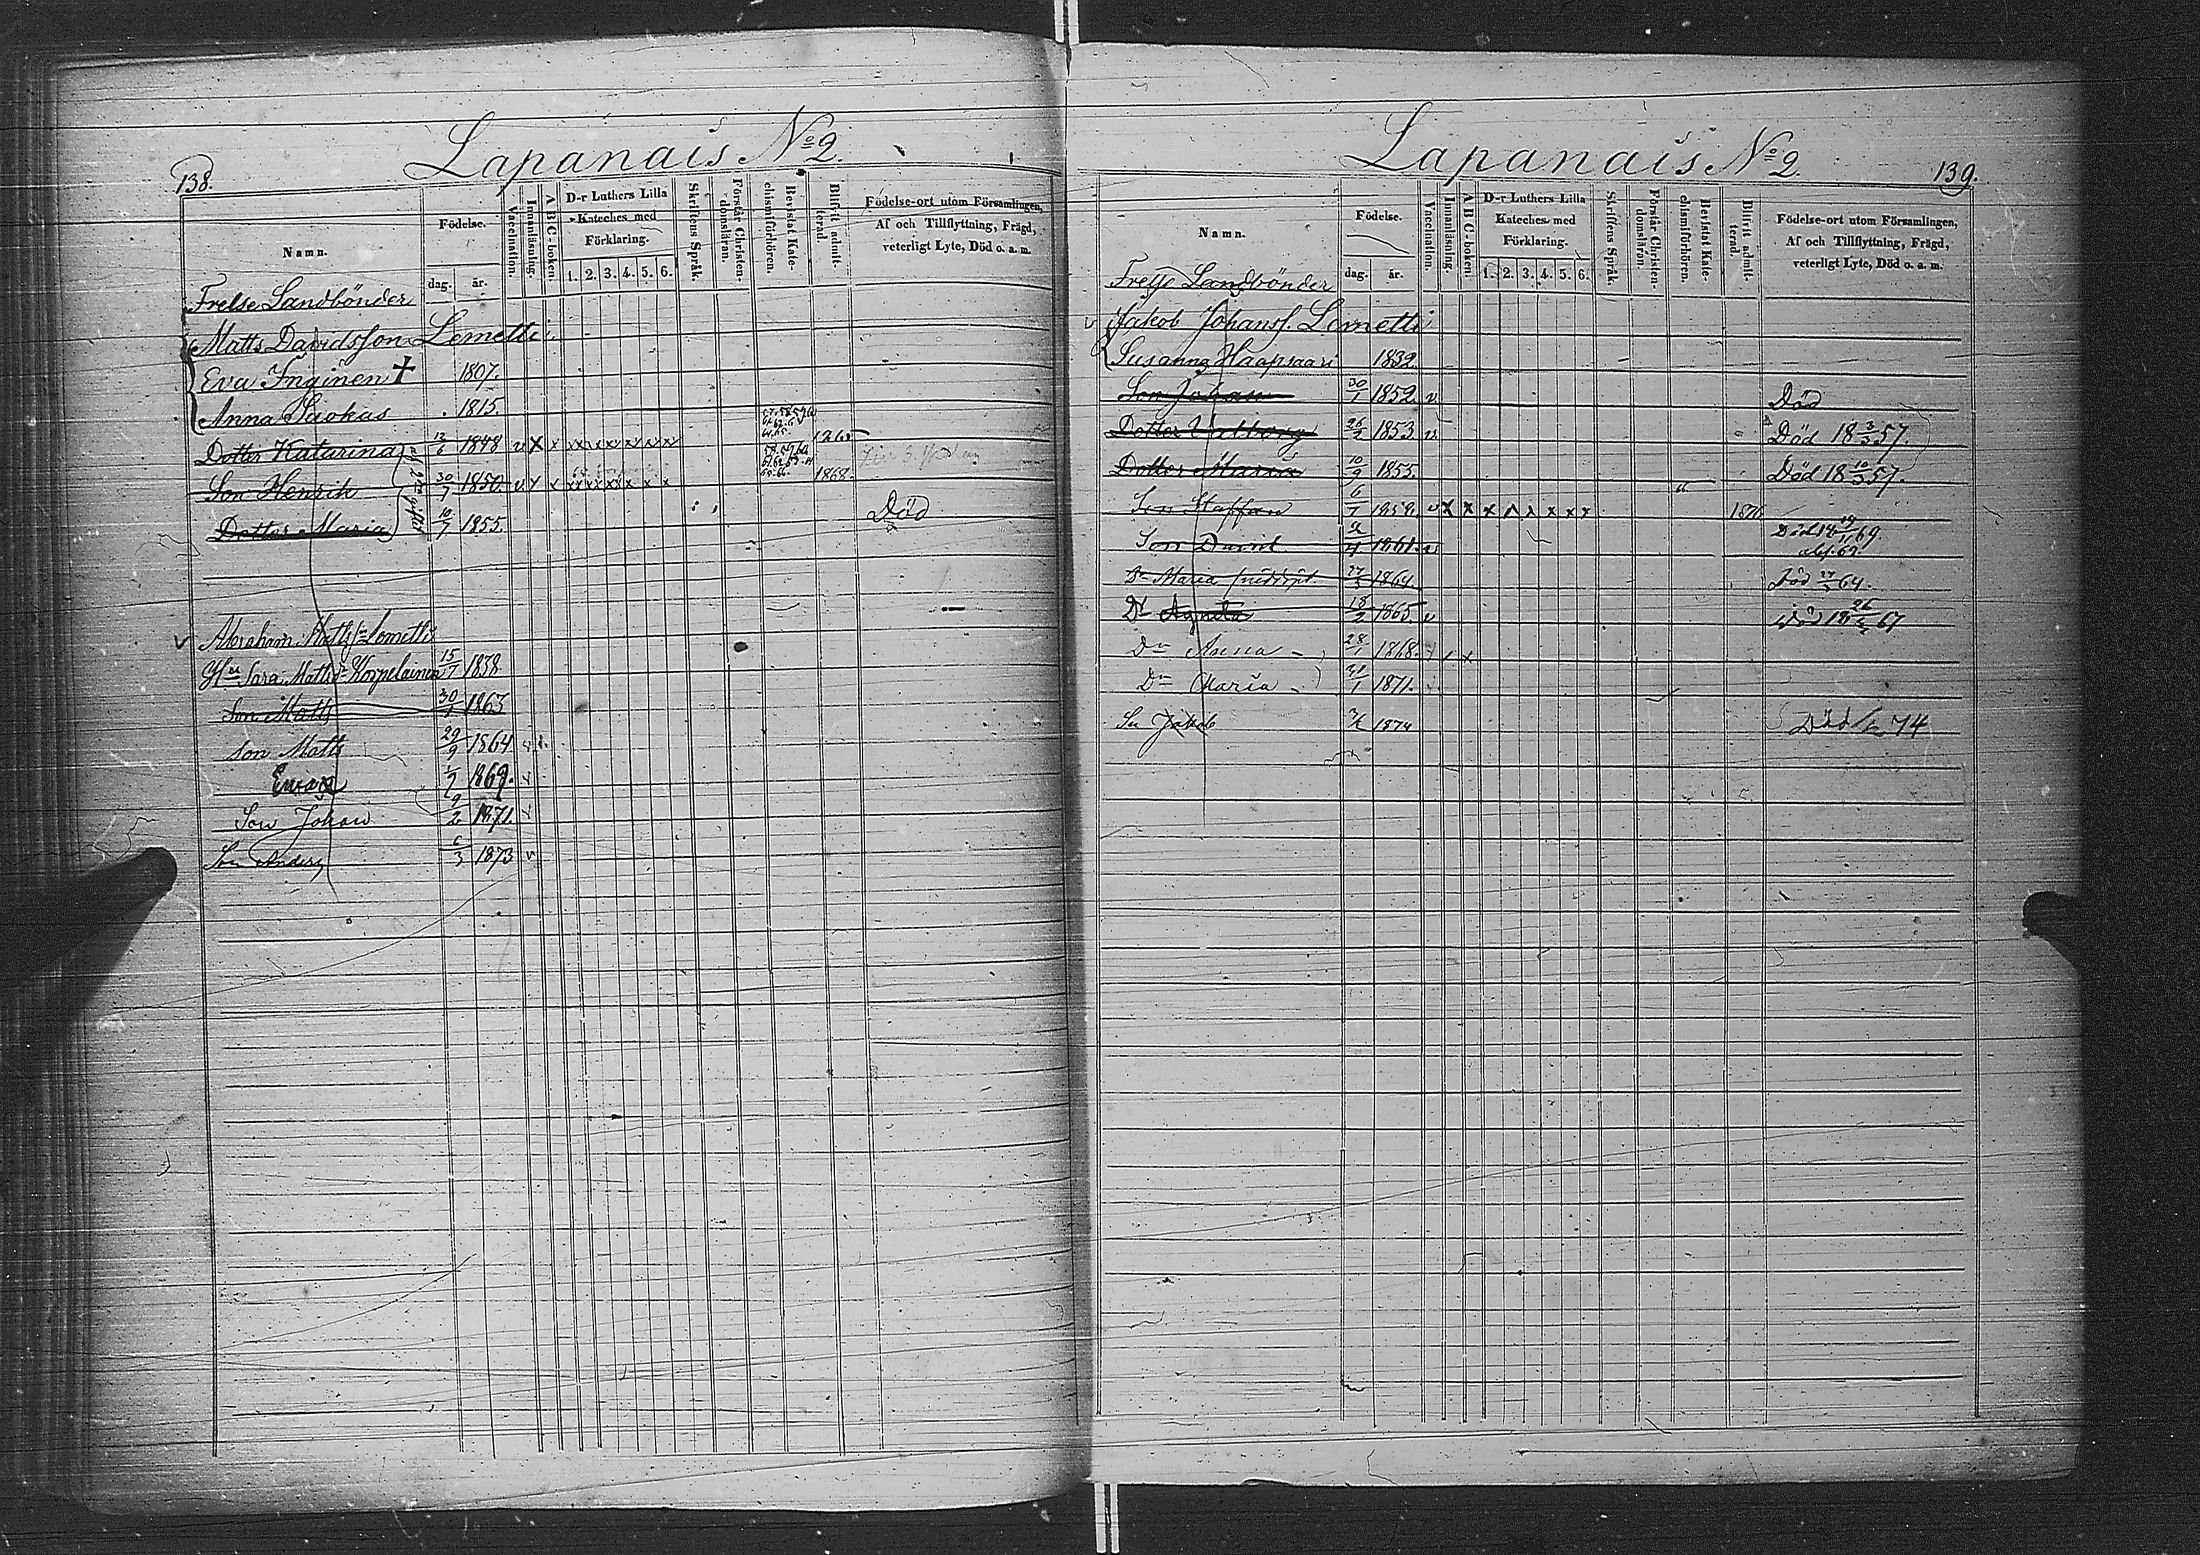 138.
Lapanais No 2.
Namn.
Födelse.
dag. år.
Vaccination.
Innanläsning.
A B C-boken.
D-r Luthers Lilla
Kateches med
Förklaring.
1. 2. 3. 4. 5. 6.
Skriftens Språk.
Förstår Christen-
domsläran.
Bevistat Kate-
chismiförhören.
Blifvit admit-
terad.
Födelse-ort utom Församlingen,
Af och Tillflyttning, Frägd,
veterligt Lyte, Död o. a. m.
Frelse Landbönder
Matts Davidsson Lemetti
Eva Inginen † 1807.
Anna 1815.
Dotter Katarina 13/6 1848 v X x x x x x x x
Son Henrik 30/7 1850 v x x x x x x x 1868.
Dotter Maria 10/7 1855. Död
Abraham Matts Lemetti
Hu Sara Mattsdr Korpelainen 15/7 1838
Son Matts 30/ 1863
Son Matts 29/9 1864 v
1869. v
Son Johan 9/2 1871. v
Son Anders 6/3 1873 v
139.
Lapanais No 2.
Namn.
Födelse.
dag. år.
Vaccination.
Innanläsning.
A B C-boken.
D-r Luthers Lilla
Kateches med
Förklaring.
1. 2. 3. 4. 5. 6.
Skriftens Språk.
Förstår Christen-
domsläran.
Bevistat Kate-
chismiförhören.
Blifvit admit-
terad.
Födelse-ort utom Församlingen,
Af och Tillflyttning, Frägd,
veterligt Lyte, Död o. a. m.
Frelse Landbönder
Jakob Johanss. Lemetti
Susanna Haapsaari 1832.
Son Johan 30/1 1852. v Död
Dotter Valborg 26/2 1853. v Död 18 3/3 57.
Dotter Maria 10/9 1855. Död 18 10/3 57.
Son Staffan 6/7 v X x x x x x x 1876
Son David 1861. v Död 69.
Dr Maria 27/3 1864 Död 27/3 64.
Dr Agneta 18/2 1865. v Död 67
Dr Anna 28/1 1868.
Dr Maria 1871.
Sn Jakob 1874 Död 74